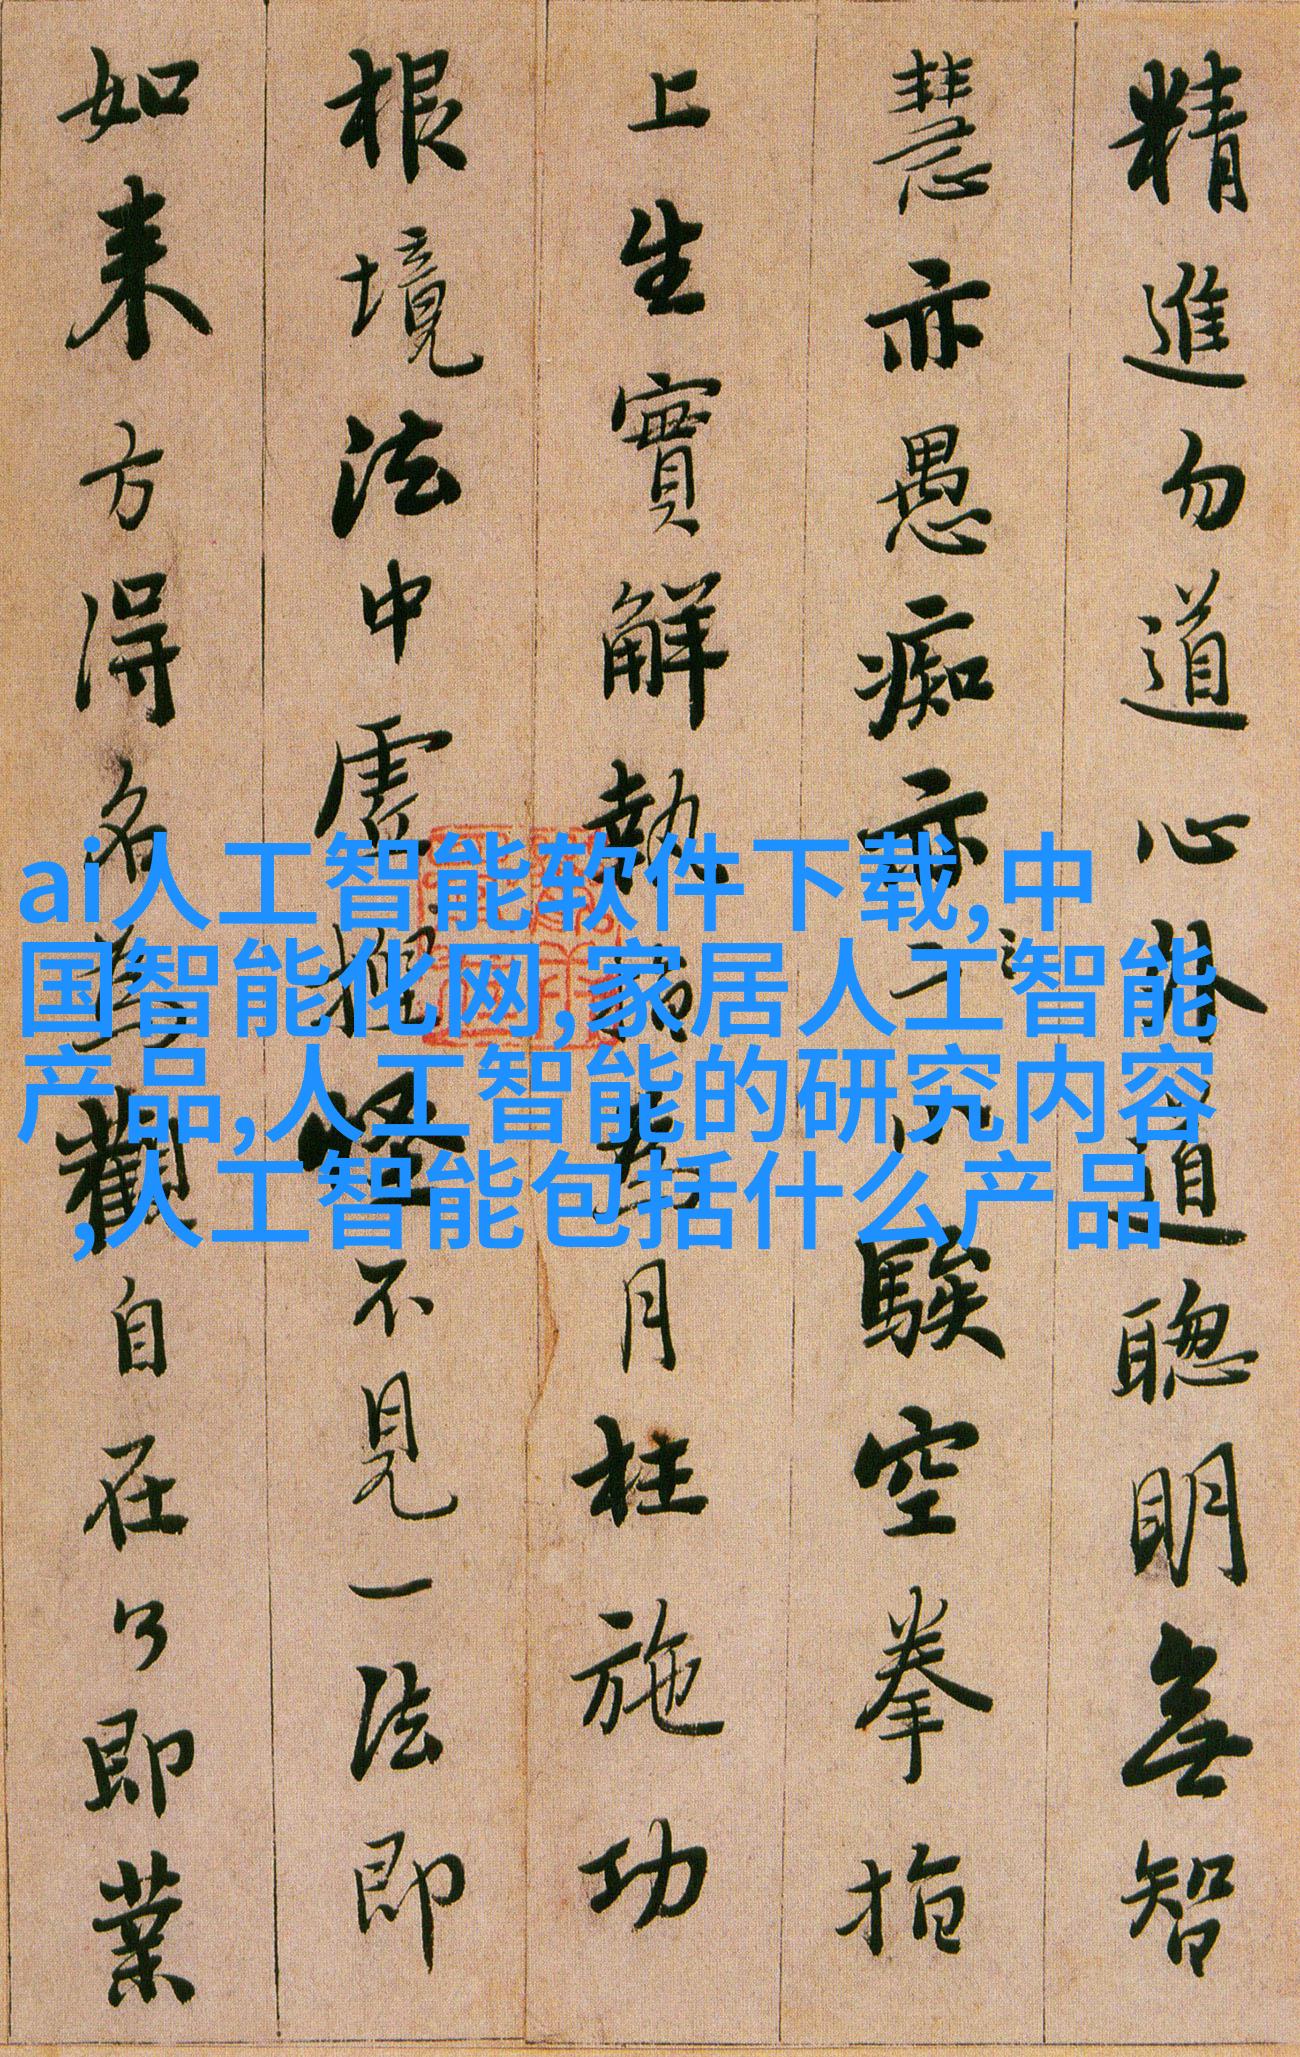 精進勿道心外道聰明無智
慧亦愚痴亦騃空拳指
上生實解執指為月枉施功
根境法中虛捏怪不見一法即
如来方得名為觀自在了即業
ai人工智能软件下载,中
国智能化网,家居人工智能
产品,人工智能的研究内容
,人工智能包括什么产品